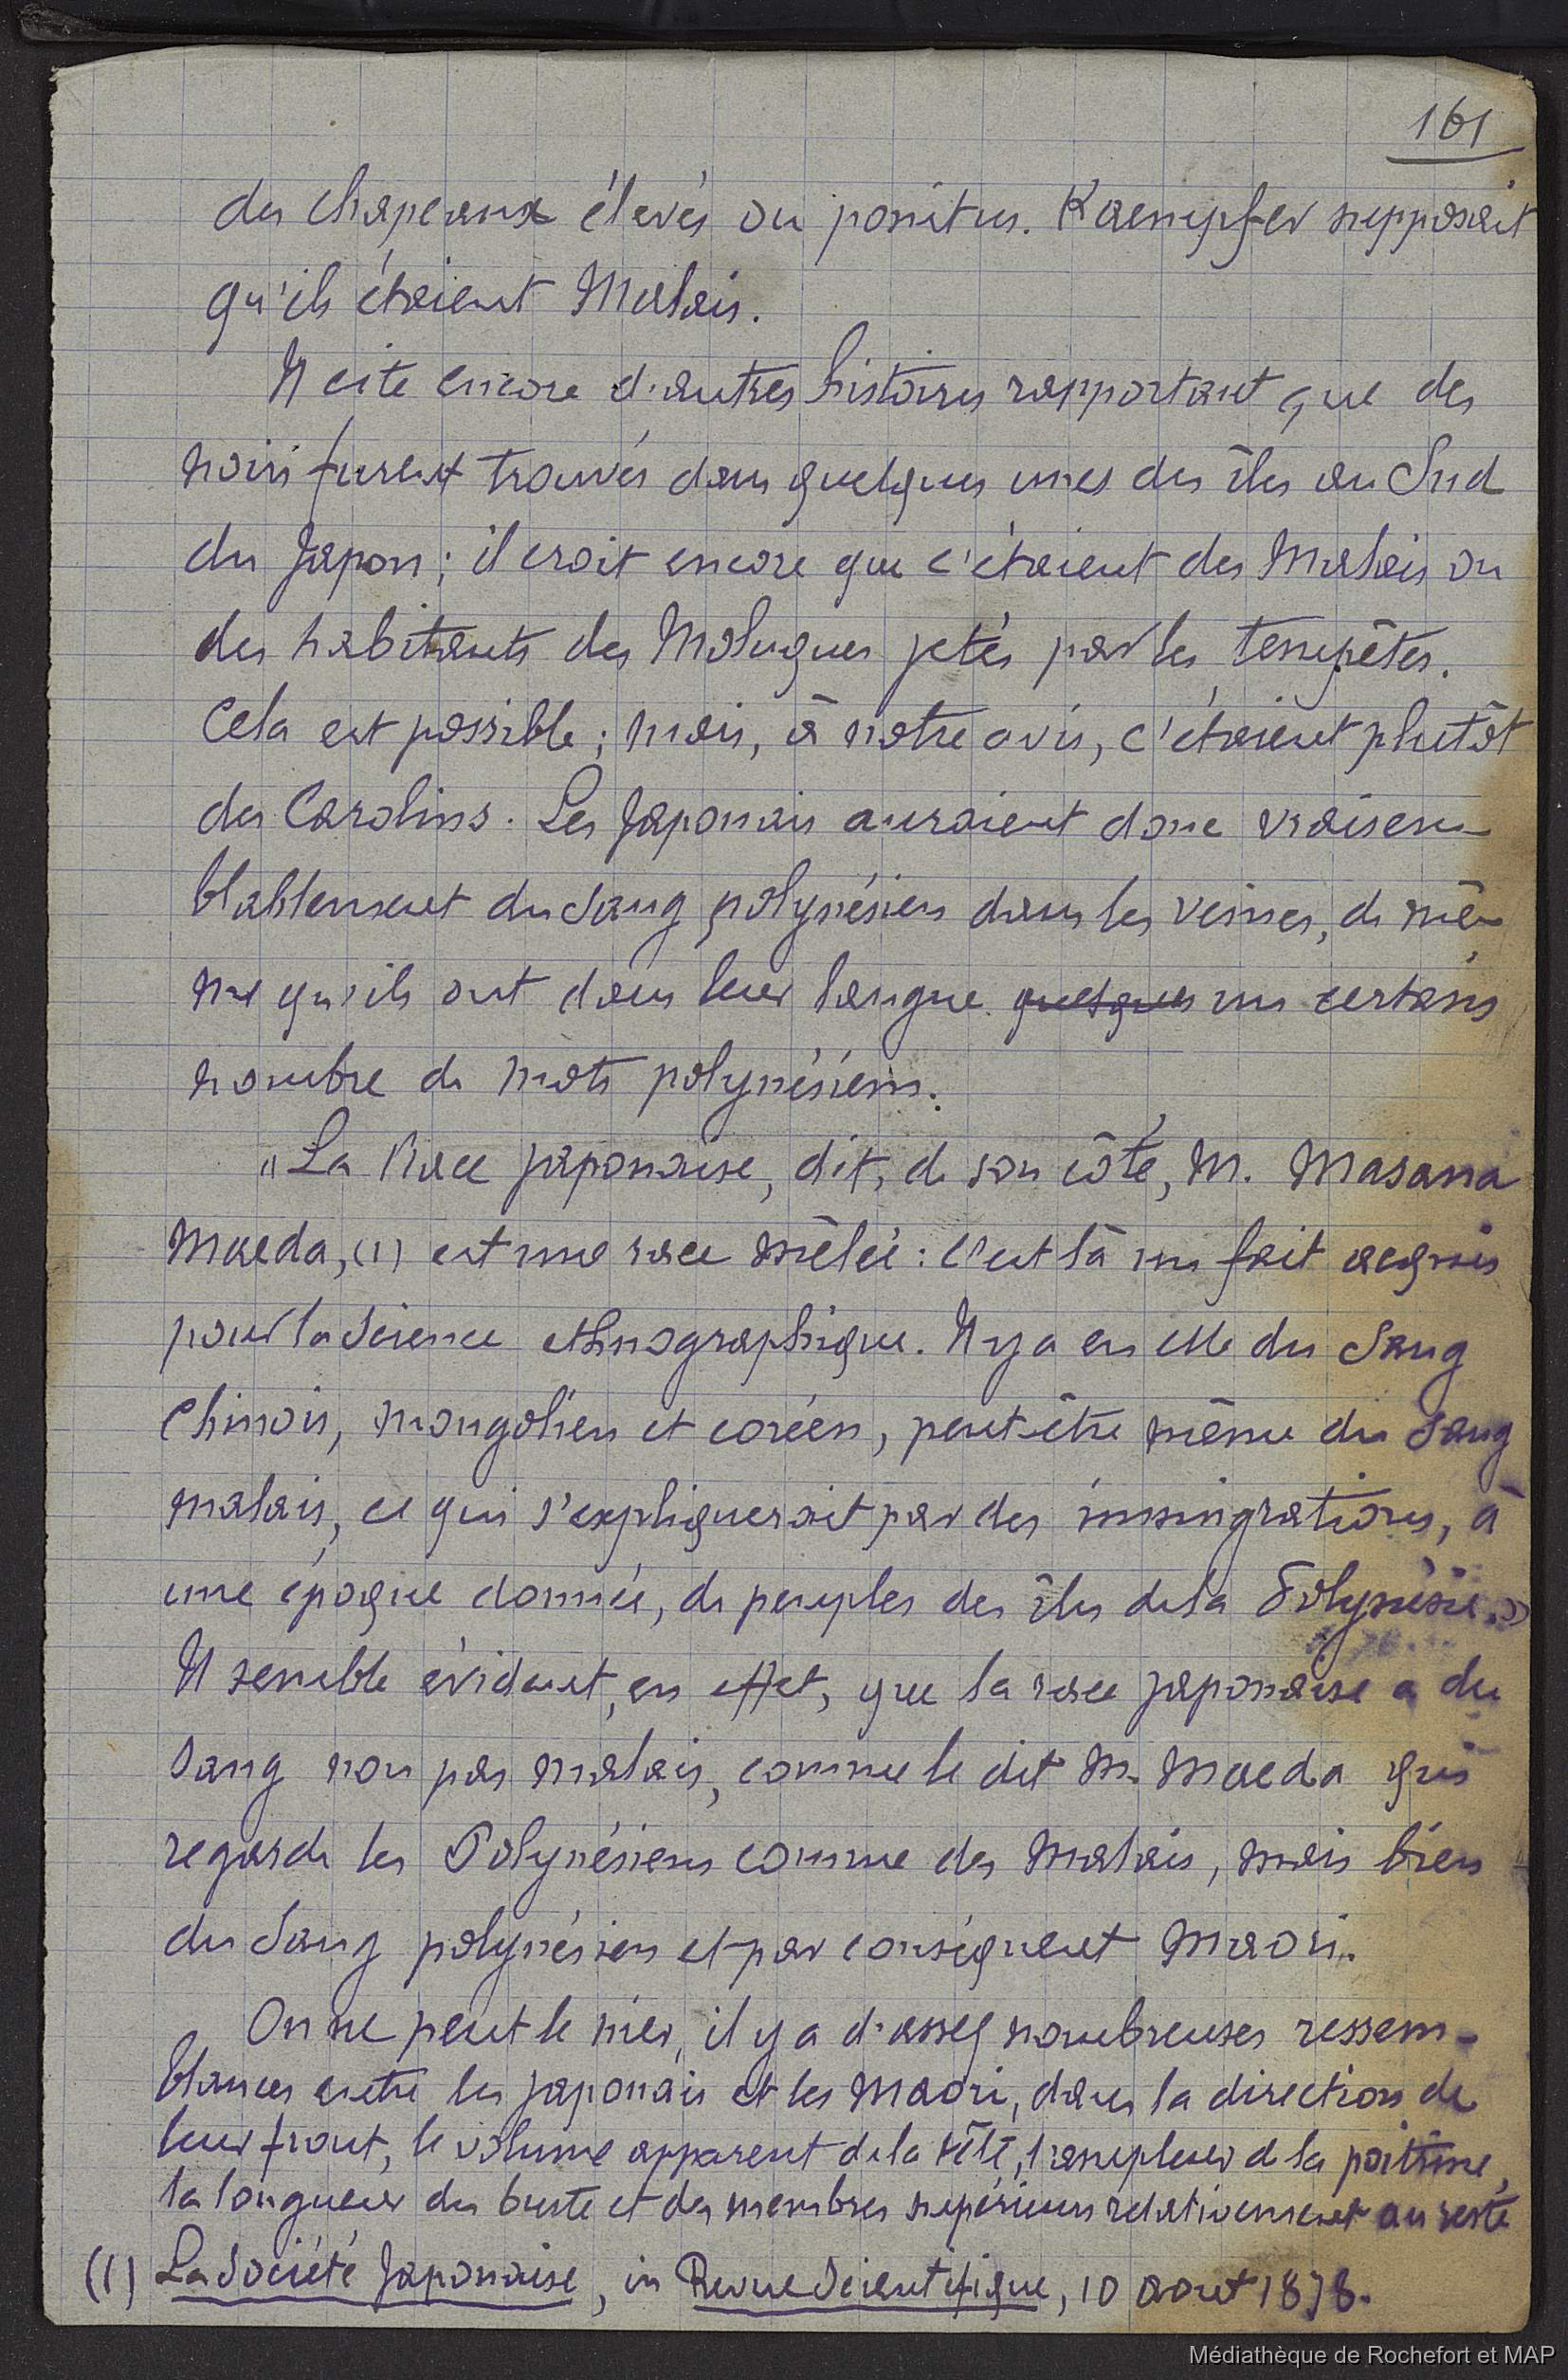 161
des chapeaux élevés ou pointus. Kaempfer supposait
qu'ils étaient Malais.
Il cite encore d'autres histoires rapportant que des
noirs furent trouvés dans quelques unes des îles au Sud
du Japon ; il croit encore que c'étaient des Malais ou
des habitants des Moluques jetés par les tempêtes.
Cela est possible ; mais, à notre avis, c'étaient plutôt
des Carolins. Les Japonais auraient donc vraisem-
blablement du sang polynésien dans les veines, de mê-
me qu'ils ont dans leur langue quelques un certain
nombre de mots polynésiens.
"La Race japonaise, dit, de son côté, M. Masana
Maeda, (1) est une race mêlée : c'est là un fait acquis
pour la science ethnographique. Il y a en elle du sang
Chinois, mongolien et coréen, peut-être même du sang
malais, ce qui s'expliquerait par des immigrations, à
une époque donnée, de peuples des îles de la Polynésie."
Il semble évident, en effet, que la race japonaise a du
sang non pas malais, comme le dit M. Maeda qui
regarde les Polynésiens comme des Malais, mais bien
du sang polynésien et par conséquent Maori.
On ne peut le nier, il y a d'assez nombreuses ressem-
blances entre les japonais et les Maori, dans la direction de
leur front, le volume apparent de la tête, l'ampleur de la poitrine,
la longueur du buste et des membres supérieurs relativement au reste
(1) La Société Japonaise, in Revue Scientifique, 10 aout 1878.
Médiathèque de Rochefort et MAP